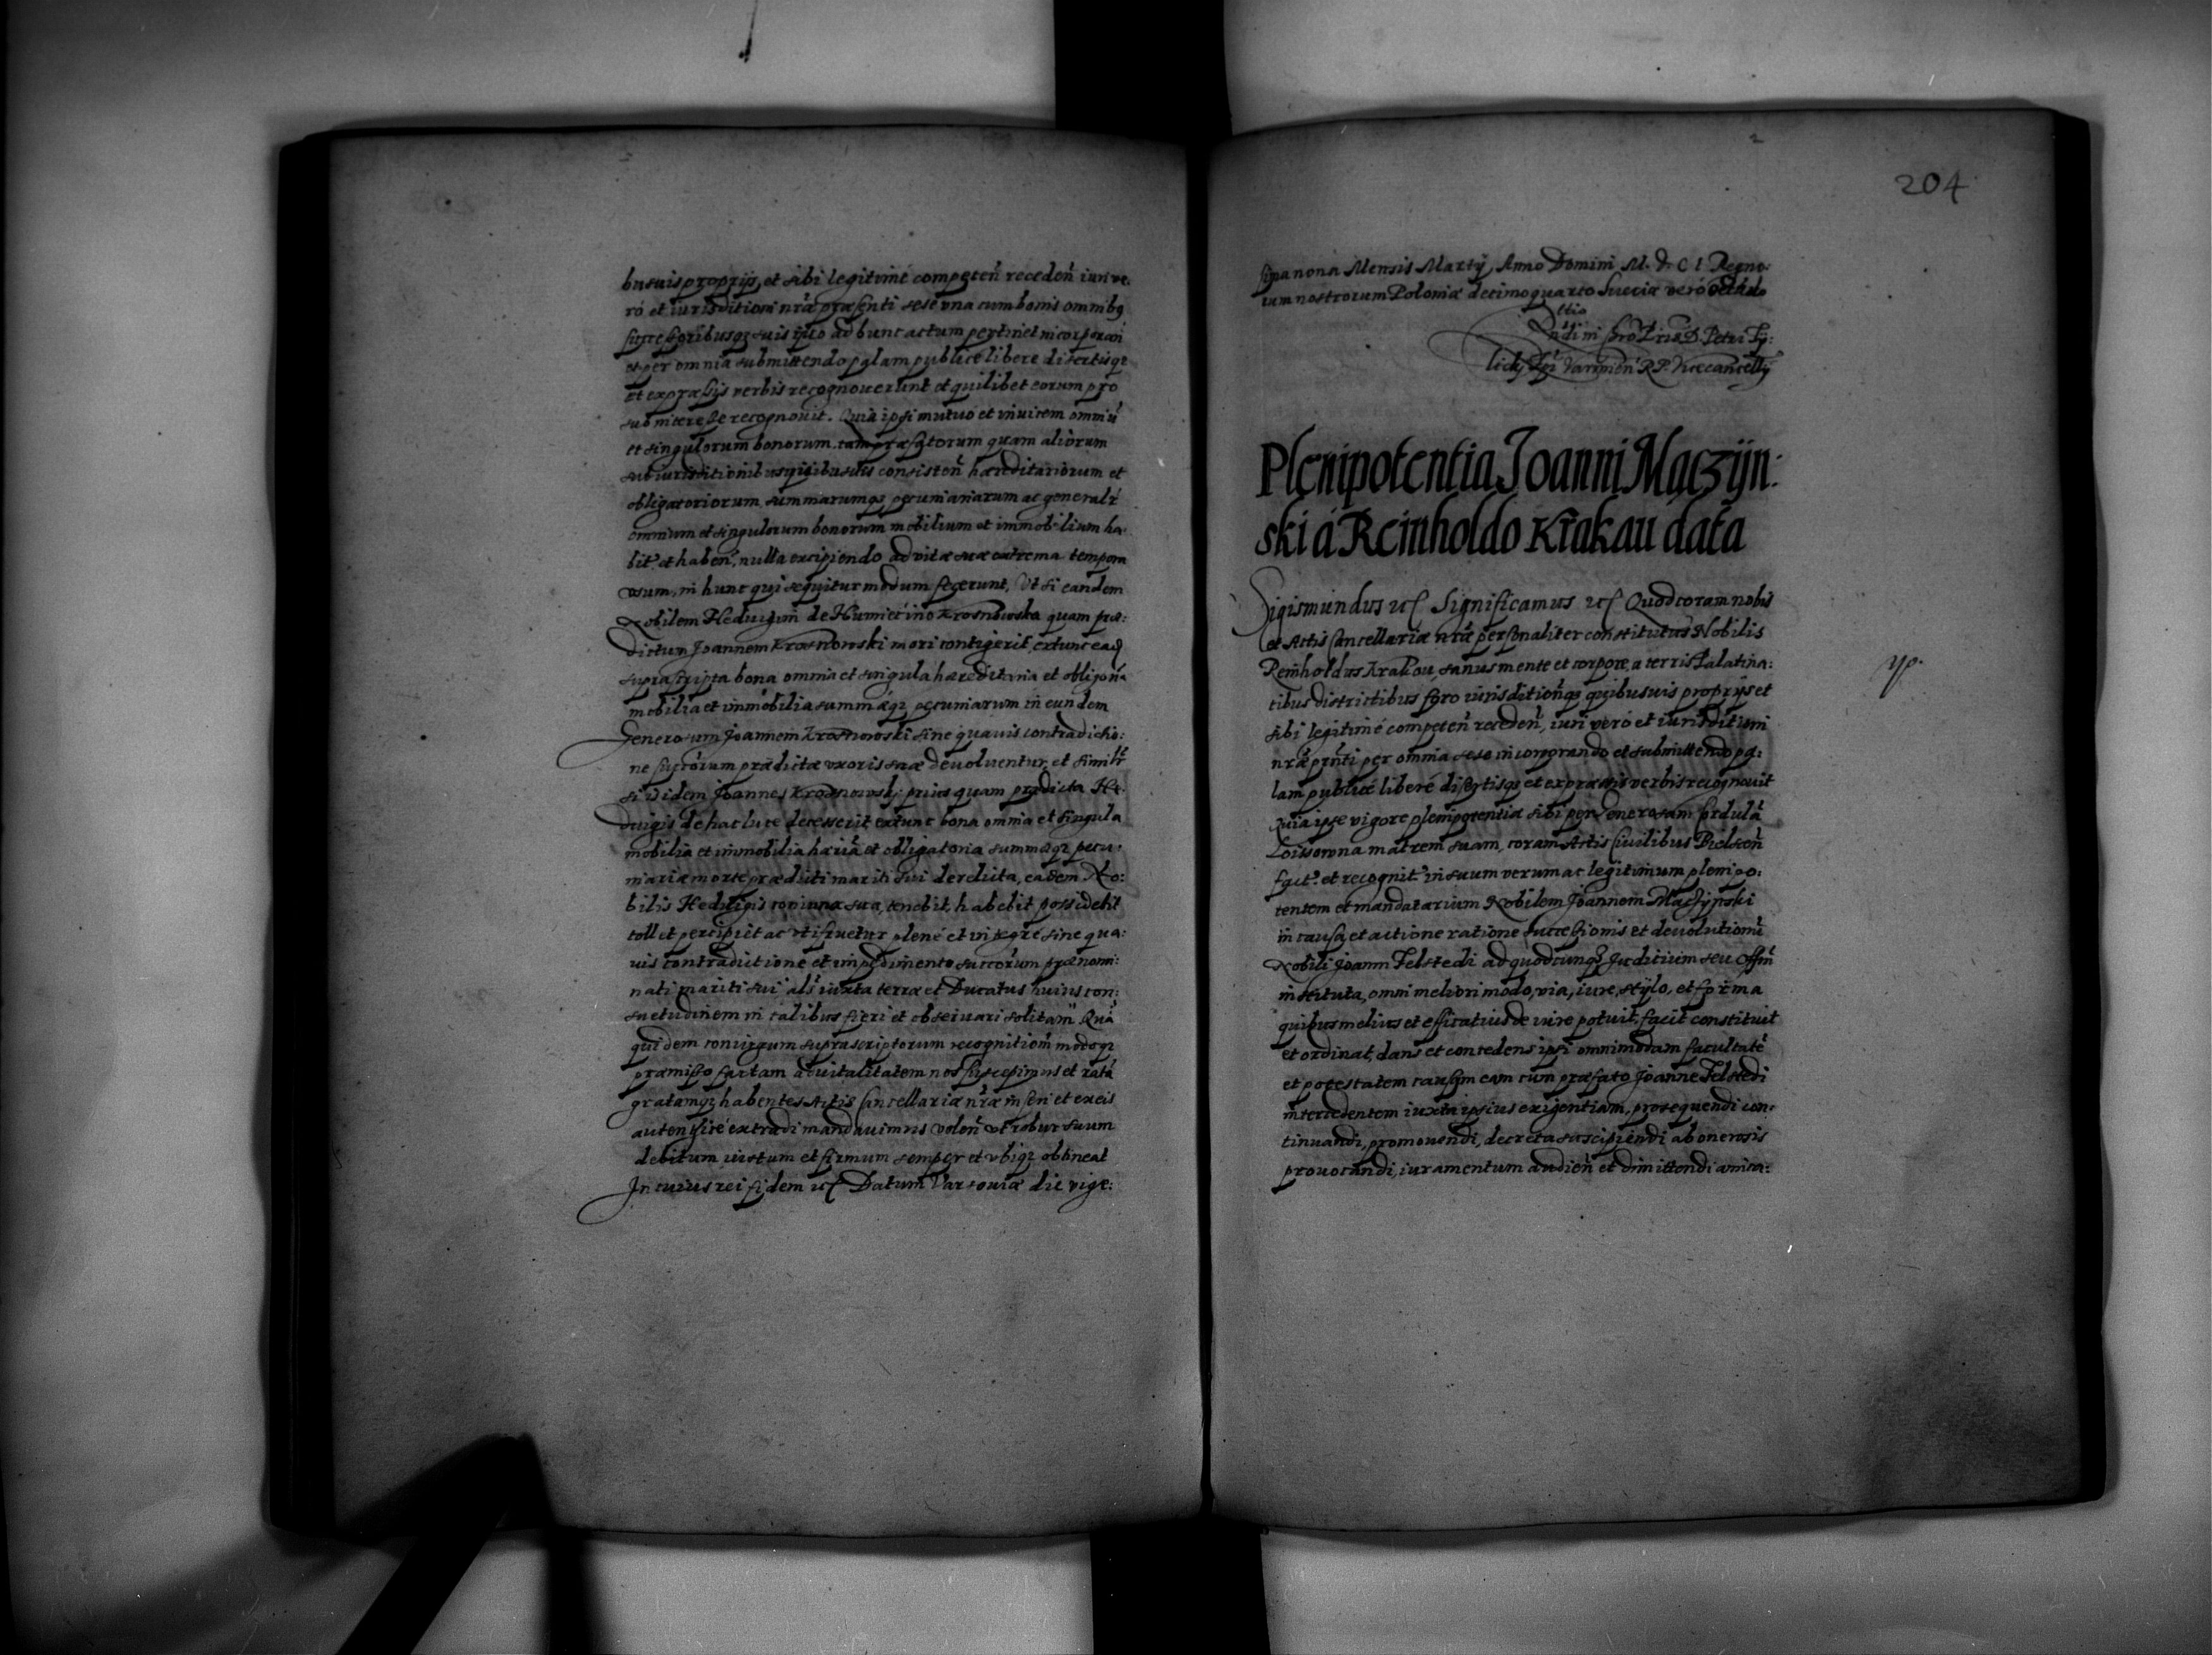 bus suis proprijs, et sibi legitimé competeñ recedeñ iuri ve:
ró et iurisditioni nrãe præsenti sese vna cum bonis omnibq̨
successoribusqʒ suis quo ad hunc actum pertinet incorporań
et per omnia submittendo palam publicé libere disertisqʒ
et expræssis verbis recognouerunt et quilibet eorum pro
sub interesse recognouit. Quia ipsi mutuó et inuicem omniũ
et singulorum bonorum tam præsstorum quam aliorum
sub iurisditionibus quibusuis consisteñ hæreditariorum et
obligatoriorum summarumqʒ pecuniariarum ac generalr̃
omnium et singulorum bonorum mobilium et immobilium ha:
bit? et habeñ, nulla excipiendo ad vitæ suæ extrema tempora
vsum, in hunc qui sequitur modum fecerunt, Vt si eandem
Nobilem Heduigim de Humiećino Krosnowska quam præ:
dictum Joannem Krosnowski mori contigerit, extunc eadʒ
suprascripta bona omnia et singula hæreditaria et obligoñ
mobilia et immobilia summæqʒ pecuniarum in eundem
Generosum Joannem Krosnowski sine quauis contradictio:
ne succorum prædictæ vxoris suæ deuoluentur, et similtr̃
si idem Joannes Krosnowskj prius quam prædicta He:
duigis de hac luce decesserit extunc bona omnia et singula
mobilia et immobilia hæriã et obligatoria summæqʒ pecu:
niariæ morte prædicti mariti sui derelicta, eadem No:
bilis Heduigis coniunx sua, tenebit, habebit possidebit
toll et percipiet ac vtifruetur plené et integré sine qua:
uis contradictione et impedimento succorum prænomi:
nati mariti sui als̃ iuxta terræ et Ducatus huius con:
suetudinem in talibus fieri et obseruari solitam Quã
quidem coniugum suprascriptorum recognitioñ modoqʒ
præmisso factam aduitalitatem nos suscepimus et ratã
gratamqʒ habentes Actis Cancellariæ nrãe inseri et ex eis
autentice extradi mandauimus voleñ vt robur suum
debitum iustum et firmum semper et vbiqʒ obtineat
In cuius rei fidem ꝛcʃ Datum Varsouiæ die vige:
204
sima nona Mensis Martij, Anno Domini M. D. C I. Regno:
rum nostrorum Poloniæ decimoquarto Sueciæ veró octauo
D. Petri Ty:
lickj Epi Varmień R.P. Vicecancellij
Plenipotentia Joanni Mączijn:
ski á Reinholdo Krakau data
Sigismundus ꝛcʃ Significamus ꝛcʃ Quod coram nobis
et Actis Cancellariæ nrãe personaliter constitutus Nobilis
Reinholdus Krakau, sanus mente et corpore, a terris Palatina:
tibus districtibus foro iurisditioñqʒ quibusuis proprijs et
sibi legitimé competeñ recedeñ, iuri veró et iurisditioni
nrãe prñti per omnia sese incorporando et submittendo pa:
lam publicé liberé disertisqʒ et expræssis verbis recognouit
Quia ipse vigore plenipotentiæ sibi per Generosam Cordulã
matrem suam, coram Actis Ciuilibus
fact? et recognit? in suum verum ac legitimum plenipo:
tentem et mandatarium Nobilem Joannem Mączijnski
in causa et actione ratione successionis et deuolutionũ
Nobili Joanni Telstedi ad quodcunqʒ Juditium seu offim̃
instituta, omni meliori modo, via, iure, stÿlo, et forma
quibus melius et efficatius de iure potuit, facit constituit
et ordinat, dans et concedens ipsi omnimodam facultatẽ
et potestatem causam eam cum præfato Joanne Telstedi
intercedentem iuxta ipsius exigentiam, prosequendi con:
tinuandi, promouendi, decreta suscipiendi ab onerosis
prouocandi, iuramentum audień et dimittendi amica: